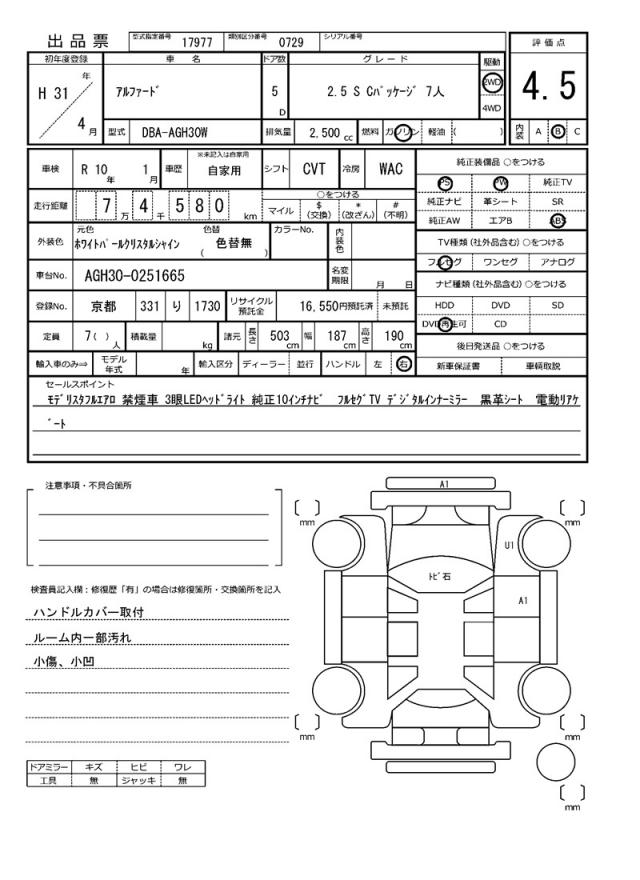 出品票 型式指定番号 17977 類別区分番号 0729 シリアル番号
評価点
4.5
内装 A B C
初年度登録 車名 ドア数 グレード 駆動
H 31 年 4 月 アルファード 5 D 2.5 S Cパッケージ 7人 2WD 4WD
型式 DBA-AGH30W 排気量 2,500 cc 燃料 ガソリン 軽油 ( )
車検 R 10 年 1 月 車歴 ※未記入は自家用 自家用 シフト CVT 冷房 WAC
走行距離 7 万 4 千 5 8 0 km ○をつける マイル $(交換) *(改ざん) #(不明)
外装色 元色 ホワイトパールクリスタルシャイン 色替 ( 色替無 ) カラーNo. 内装色
車台No. AGH30-0251665 名変期限 月 日
登録No. 京都 331 り 1730 リサイクル預託金 16,550円預託済 未預託
定員 7( )人 積載量 kg 諸元 長さ 503 cm 幅 187 cm 高さ 190 cm
輸入車のみ⇒ モデル年式 年 輸入区分 ディーラー 並行 ハンドル 左 右
純正装備品 ○をつける
PS PW 純正TV
純正ナビ 革シート SR
純正AW エアB ABS
TV種類(社外品含む) ○をつける
フルセグ ワンセグ アナログ
ナビ種類(社外品含む) ○をつける
HDD DVD SD
DVD再生可 CD
後日発送品 ○をつける
新車保証書 車輌取説
セールスポイント
モデリスタフルエアロ 禁煙車 3眼LEDヘッドライト 純正10インチナビ フルセグTV デジタルインナーミラー 黒革シート 電動リアケ
゛ート
注意事項・不具合箇所
検査員記入欄:修復歴「有」の場合は修復箇所・交換箇所を記入
ハンドルカバー取付
ルーム内一部汚れ
小傷、小凹
ドアミラー キズ ヒビ ワレ
工具 無 ジャッキ 無
A1
[ ] mm
[ ] mm
U1
トビ石
A1
[ ] mm
[ ] mm
[ ] mm